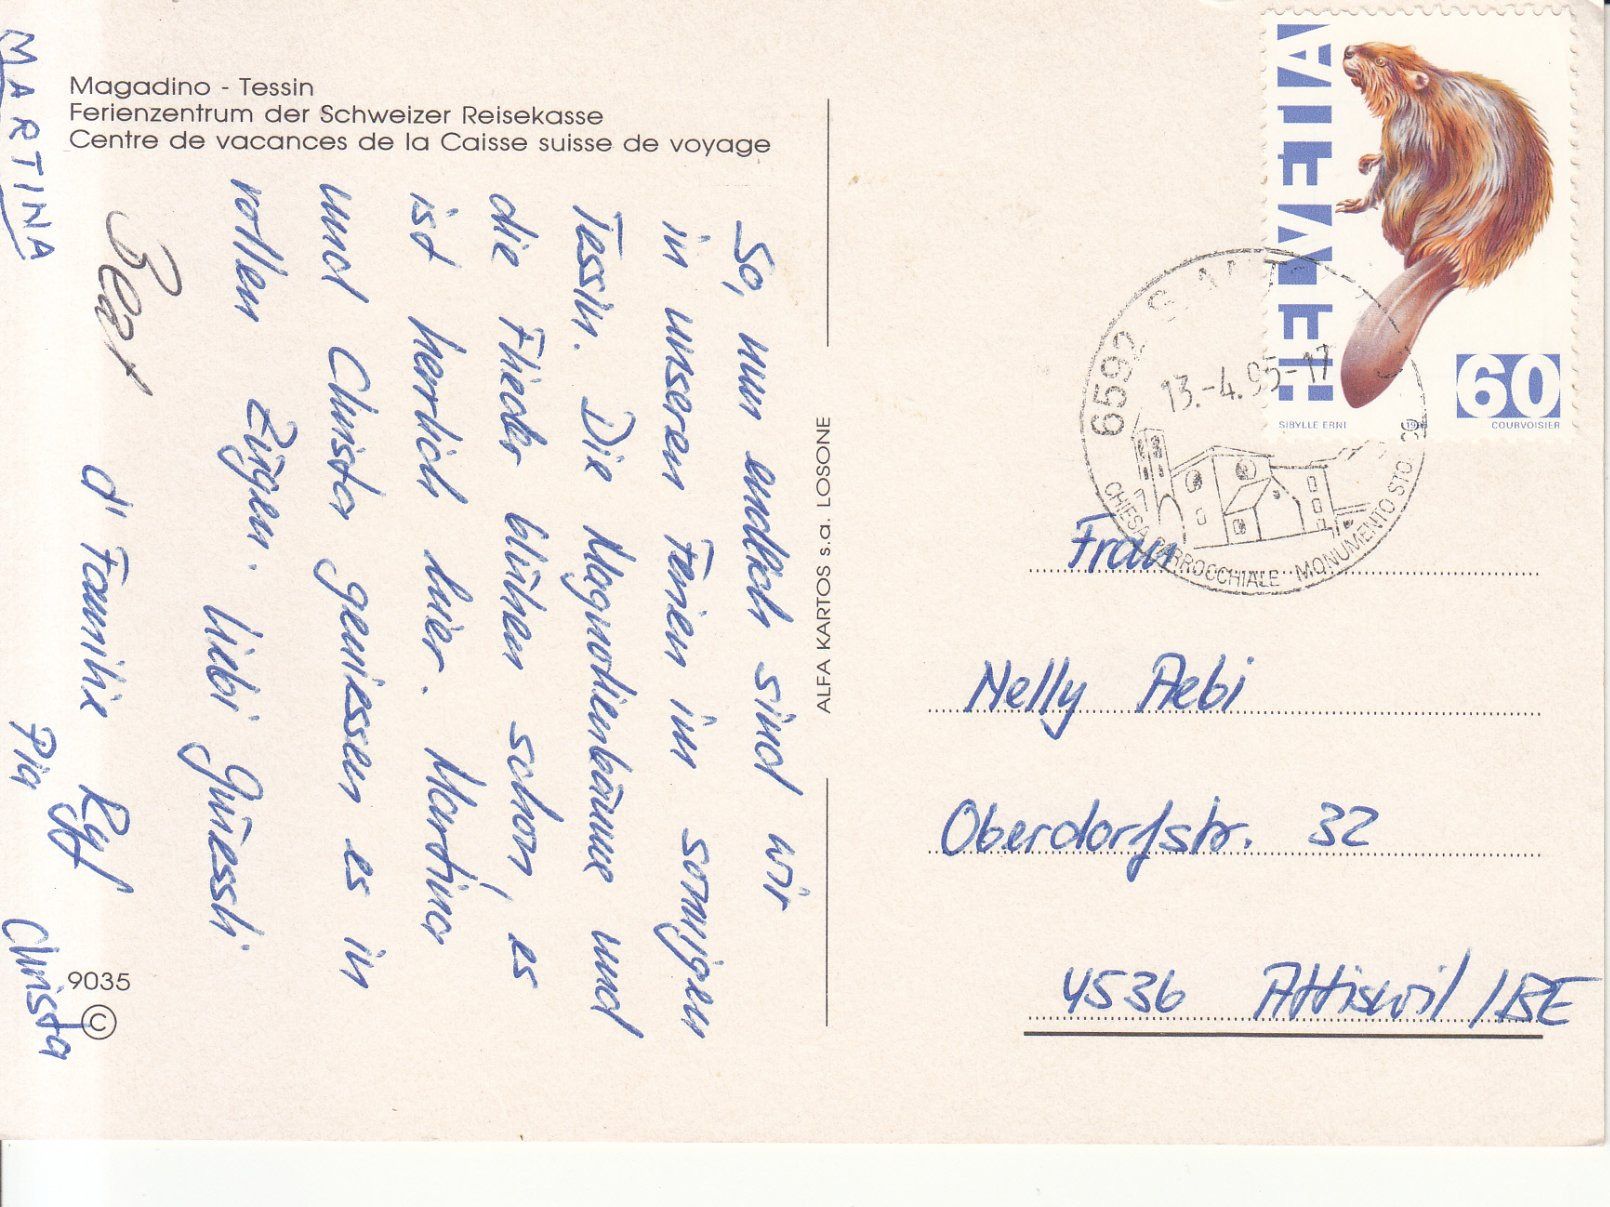 Magadino - Tessin
Ferienzentrum der Schweizer Reisekasse
Centre de vacances de la Caisse suisse de voyage
So, nun endlich sind wir
in unseren Ferien im sonnigen
Tessin. Die Magnolienbäume und
die Flieder blühen schon, es
ist herrlich hier. Martina
und Christa geniessen es in
vollen Zügen. Liebi Grüessli
d' Familie Ryf
Beat
Pia Christa
MARTINA
9035
©
ALFA KARTOS s.a. LOSONE
HELVETIA
60
SIBYLLE ERNI
COURVOISIER
6592 SANT
13.-4.95-17
CHIESA PARROCCHIALE MONUMENTO STO
Frau
Nelly Aebi
Oberdorfstr. 32
4536 Attiswil/BE